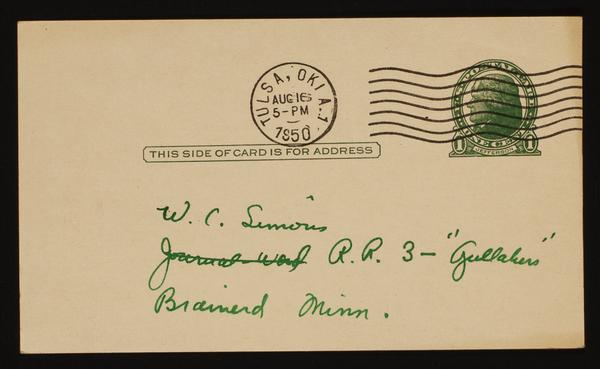 TULSA, OKLA. 1
AUG 16
5-PM
1950
1 JEFFERSON 1
THIS SIDE OF CARD IS FOR ADDRESS
W. C. Simons
Journal-World R.R. 3 - "Gullahers"
Brainerd Minn.